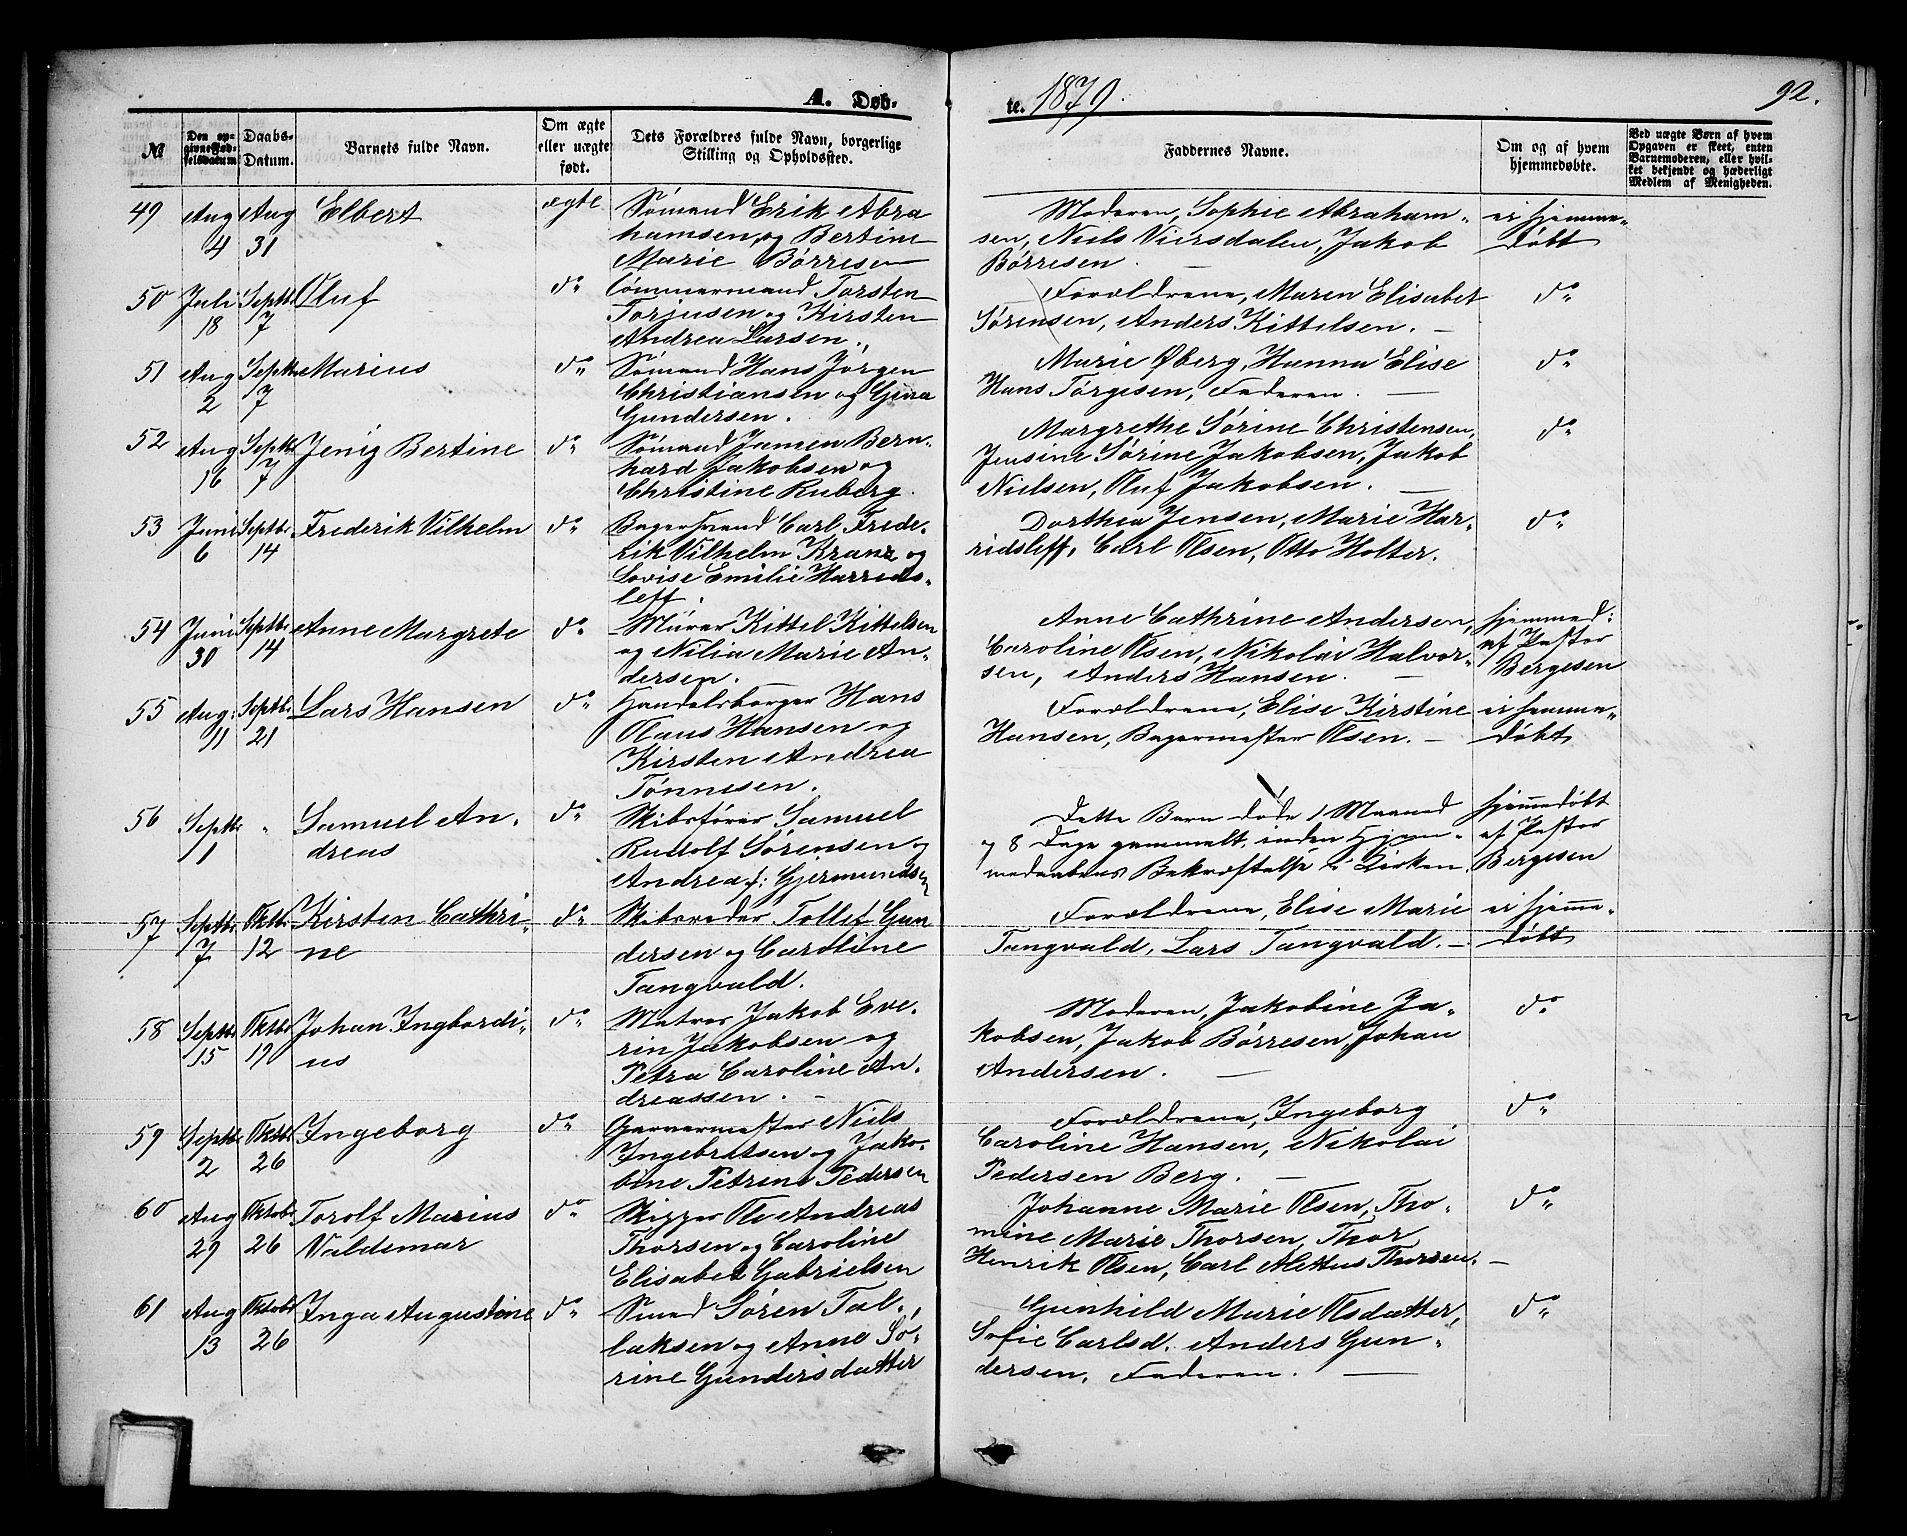 A. Døb-
te. 1879.
92.
№
Den opgivne Fødselsdatum
Daabs-Datum.
Barnets fulde Navn.
Om ægte eller uægte født.
Dets Forældres fulde Navn, borgerlige Stilling og Opholdssted.
Faddernes Navne.
Om og af hvem hjemmedøbte.
Ved uægte Børn af hvem Opgaven er skeet, enten Barnemoderen, eller hvilket bekjendt og hæderligt Medlem af Menigheden.
49 Aug 4 Aug 31 Elbert ægte
Sømand Erik Abra
hamsen og Bertine
Marie Børresen
Moderen, Sophie Abraham-
sen, Niels Viersdalen, Jakob
Børresen.
ei hjemme-
døbt
50 Juli 18 Septb 7 Oluf do
Tømmermand Torsten
Torjusen og Kirsten
Andrea Larsen.
Forældrene, Maren Elisabet
Sørensen, Anders Kittelsen.
do
51 Aug 2 Septb 7 Marius do
Sømand Hans Jørgen
Christiansen og Gina
Gundersen.
Marie Øberg, Hanna Elise
Hans Tørgesen, Faderen.
do
52 Aug 16 Septb 7 Jenig Bertine do
Sømand Jomen Bern-
hard Jakobsen og
Christine Ruberg.
Margrethe Sørine Christensen,
Jensine Sørine Jakobsen, Jakob
Nielsen, Oluf Jakobsen.
do
53 Juni 6 Septbr 14 Frederik Vilhelm do
Bagersvend Carl Frede-
rik Vilhelm Kranz og
Lovise Emilie Harrids-
leff.
Dorthea Jensen, Marie Har-
ridsleff, Carl Olsen, Otto Holter.
do
54 Juni 30 Septbr 14 Anne Margrete do
Murer Kittel Kittelsen
og Nilia Marie An-
dersen.
Anne Cathrine Andersen,
Caroline Olsen, Nikolai Halvor-
sen, Anders Hansen.
hjemmed:
af Pastor
Bergesen
55 Aug. 11 Septbr 21 Lars Hansen do
Handelsborger Hans
Olaus Hansen og
Kirsten Andrea
Tønnesen.
Forældrene, Elise Kirstine
Hansen, Bagermester Olsen.
ei hemme-
døbt
56 Septbr 1 " Samuel An-
dreas do
Skibsfører Samuel
Rudolf Sørensen og
Andrea f: Gjermundsen
Dette Barn døde 1 Maaned
og 8 Dage gammelt, inden Hjem-
medaabens Bekræftelse i Kirken.
hjemmedøbt
af Pastor
Bergesen
57 Septbr 7 Oktbr 12 Kirsten Cathri-
ne do
Skibsreder Tollef Gun
dersen og Caroline
Tangvald.
Forældrene, Elise Marie
Tangvald, Lars Tangvald.
ei hjemme-
døbt
58 Septbr 15 Oktbr 19 Johan Ingbordi-
us do
Matros Jakob Eve-
rin Jakobsen og
Petra Caroline An-
dreassen.
Moderen, Jakobine Ja-
kobsen, Jakob Børresen, Johan
Andersen.
do
59 Septbr 2 Oktbr 26 Ingeborg do
Garvermester Niels
Ingebretsen og Jako-
bine Petrine Pedersen
Forældrene, Ingeborg
Caroline Hansen, Nikolai
Pedersen Berg.
do
60 Aug 29 Oktob 26 Torolf Marius
Valdemar do
Skipper Ole Andreas
Thorsen og Caroline
Elisabet Gabrielsen
Johanne Marie Olsen, Tho-
mine Marie Thorsen, Thor
Henrik Olsen, Carl Alettus Thorsen.
do
61 Aug 13 Oktobr 26 Inga Augustine do
Smed Søren Tal-
laksen og Anne Sø-
rine Gundersdatter
Gunhild Marie Olsdatter,
Sofie Carlsd. Anders Gun-
dersen, Faderen.
do